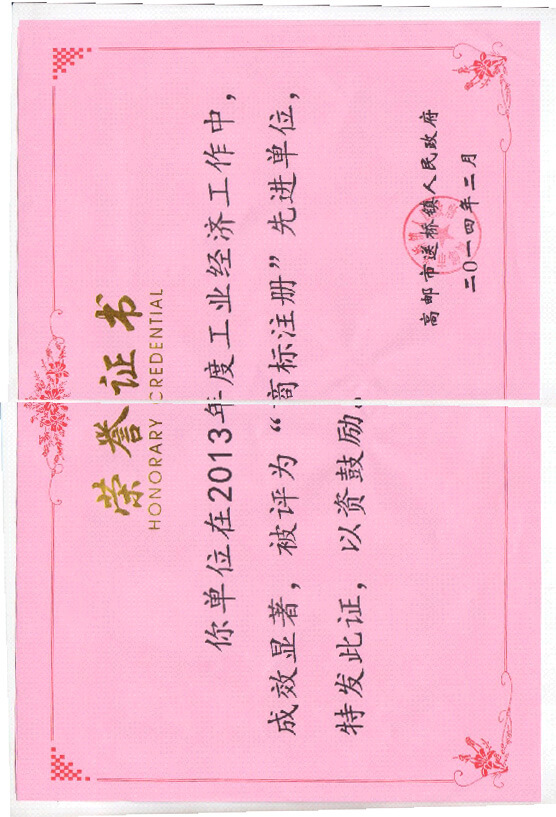 荣誉证书
HONORARY CREDENTIAL
你单位在2013年度工业经济工作中，
成效显著，被评为“商标注册”先进单位，
特发此证，以资鼓励。
高邮市送桥镇人民政府
二〇一四年二月